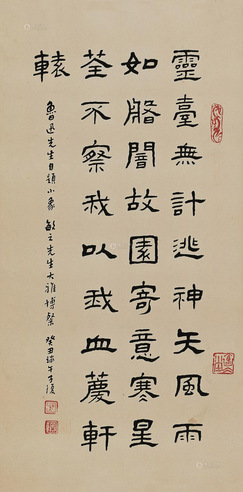 靈臺無計逃神矢風雨
如磐闇故園寄意寒星
荃不察我以我血薦軒
轅
魯迅先生自題小象 敏之先生大雅博粲 癸丑端午